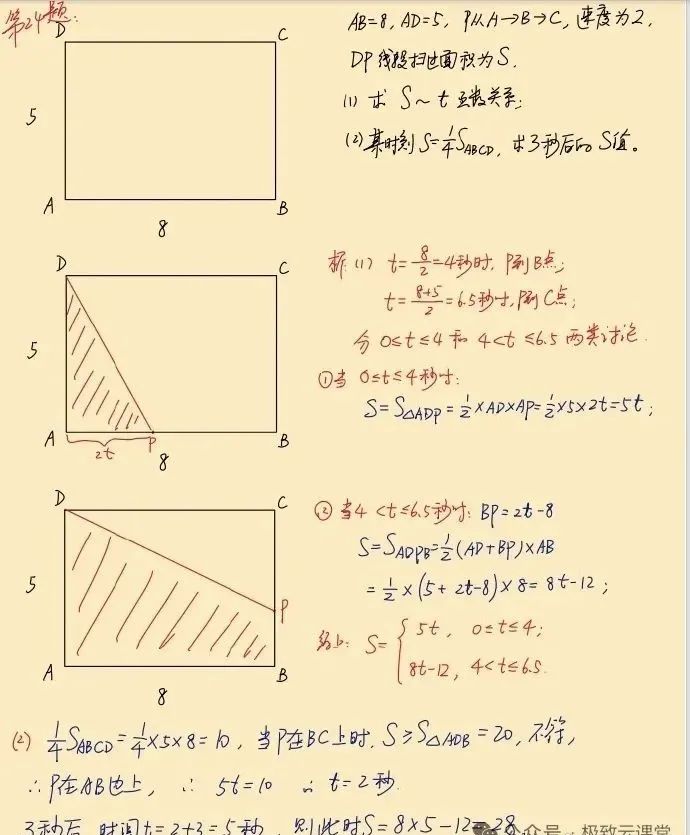 第24题:
AB=8, AD=5, P从A→B→C, 速度为2,
DP线段扫过面积为S.
(1) 求 S~t 函数关系;
(2) 某时刻 S=\frac{1}{4}S_{ABCD}, 求3秒后的S值。
D C
5
A B
8
D C
5
A P B
2t 8
析:(1) t=\frac{8}{2}=4秒时, P到B点;
t=\frac{8+5}{2}=6.5秒时, P到C点;
分 0≤t≤4 和 4<t≤6.5 两类讨论.
①当 0≤t≤4秒时:
S=S_{△ADP}=\frac{1}{2}×AD×AP=\frac{1}{2}×5×2t=5t;
D C
5
P
A B
8
②当4<t≤6.5秒时: BP=2t-8
S=S_{ADPB}=\frac{1}{2}(AD+BP)×AB
=\frac{1}{2}×(5+2t-8)×8=8t-12;
综上: S={ 5t, 0≤t≤4;
8t-12, 4<t≤6.5.
(2) \frac{1}{4}S_{ABCD}=\frac{1}{4}×5×8=10, 当P在BC上时, S≥S_{△ADB}=20, 不符,
∴P在AB边上, ∴ 5t=10 ∴ t=2秒.
3秒后, 时间t=2+3=5秒, 则此时S=8×5-12=28.
公众号·极致云课堂